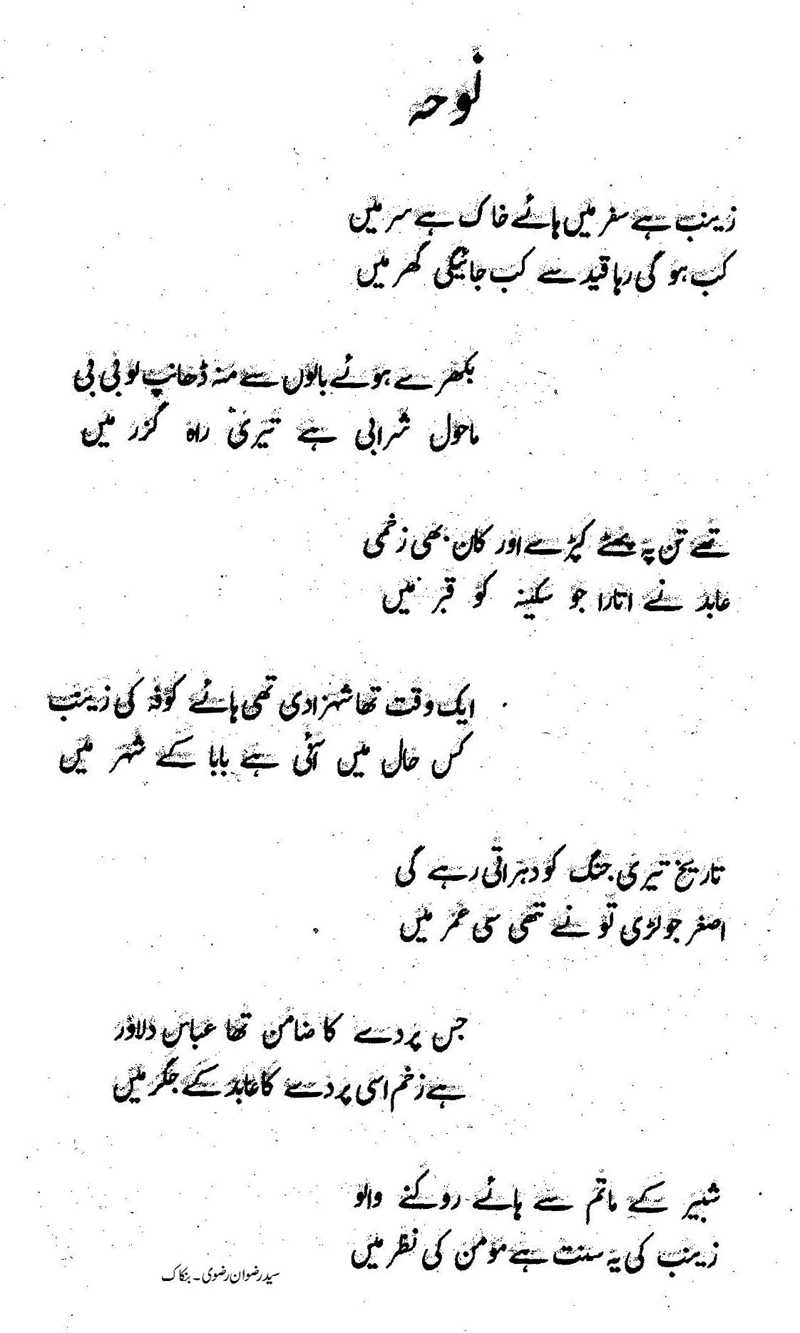 نوحہ
زینب ہے سفر میں ہائے خاک ہے سر میں
کب ہو گی رہا قید سے کب جائیگی گھر میں
بکھرے ہوئے بالوں سے منہ ڈھانپ لو بی بی
ماحول شرابی ہے تیری راہ گزر میں
تھے تن پہ پھٹے کپڑے اور کان بھی زخمی
عابد نے اتارا جو سکینہ کو قبر میں
ایک وقت تھا شہزادی تھی ہائے کوفہ کی زینب
کس حال میں آئی ہے بابا کے شہر میں
تاریخ تیری جنگ کو دہراتی رہے گی
اصغر جو لڑی تو نے ننھی سی عمر میں
جس پردے کا ضامن تھا عباس دلاور
ہے زخم اسی پردے کا عابد کے جگر میں
شبیر کے ماتم سے ہائے روکنے والو
زینب کی یہ سنت ہے مؤمن کی نظر میں
سید رضوان رضوی۔ بنکاک